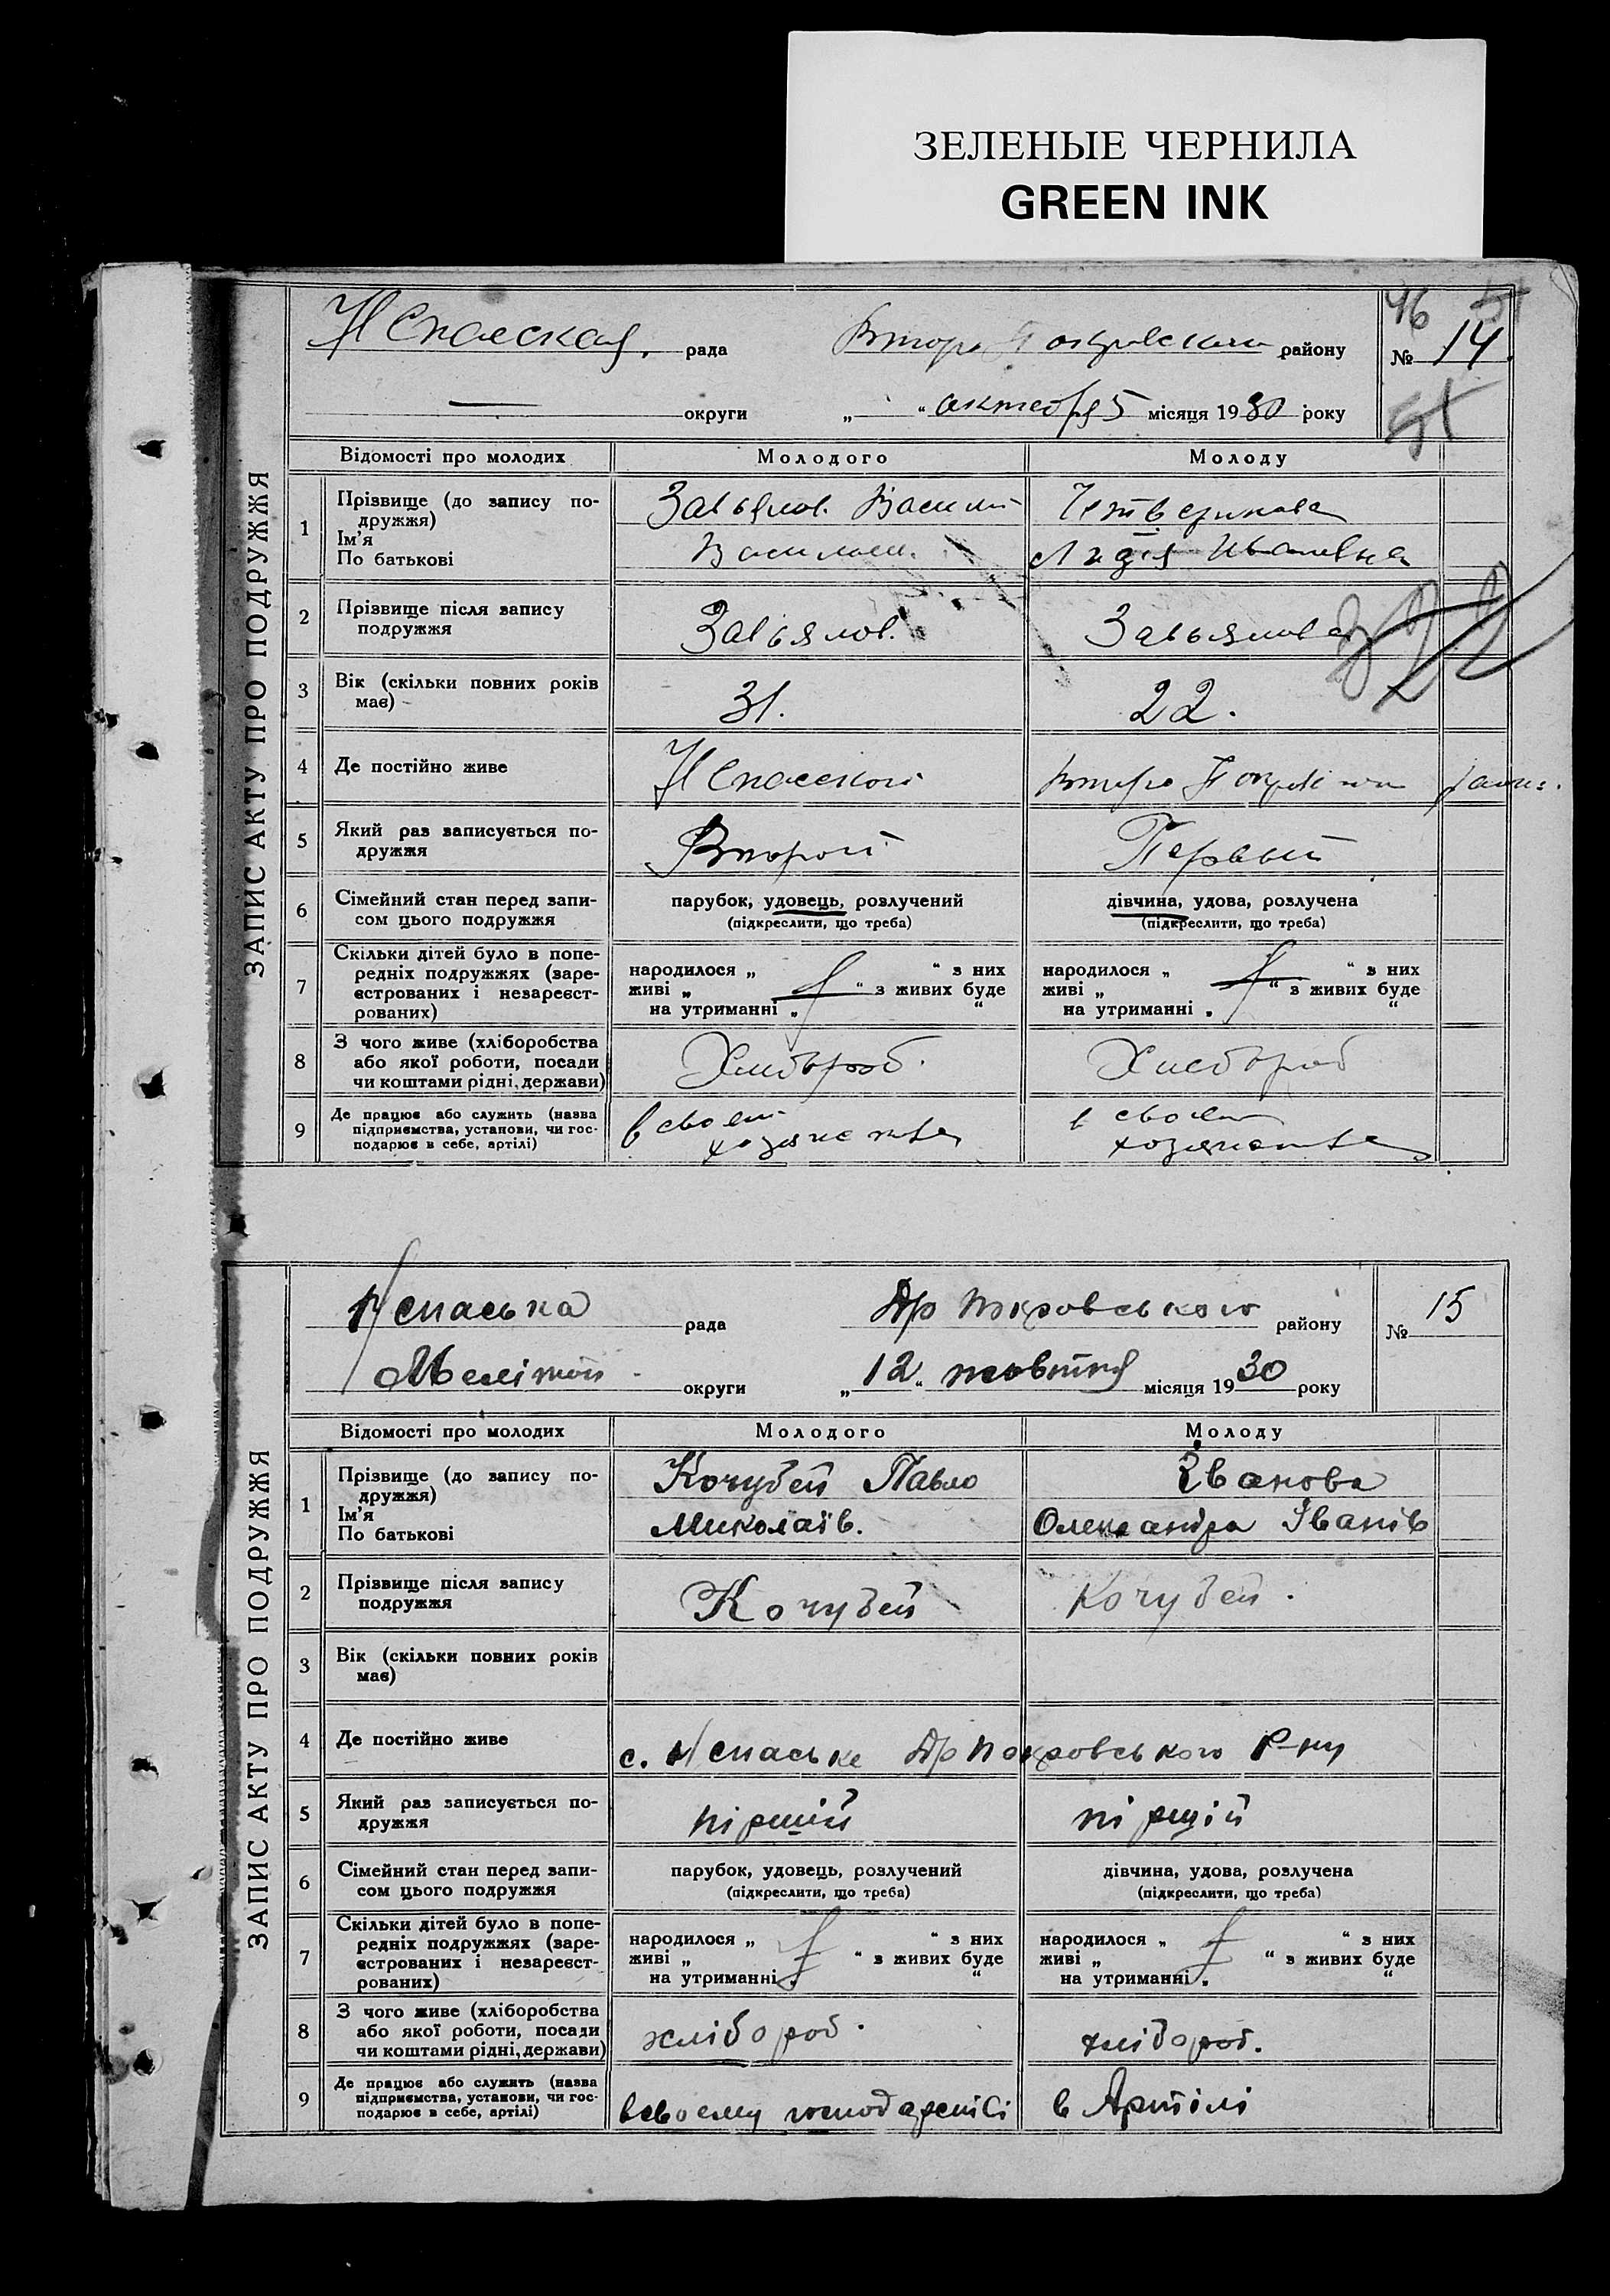 ЗЕЛЕНЫЕ ЧЕРНИЛА
GREEN INK
ЗАПИС АКТУ ПРО ПОДРУЖЖЯ
46 51
Н Спасская рада Второ Покровского району № 14
— округи „ “ октября 5 місяця 1930 року
51
Відомості про молодих Молодого Молоду
1 Прізвище (до запису по-
дружжя)
Ім'я
По батькові
Завьялов Василий
Васильев.
Четверикова
Лидия Ивановна
2 Прізвище після запису
подружжя
Завьялов. Завьялова
3 Вік (скільки повних років
має)
31. 22.
4 Де постійно живе Н Спасской Второ Покровского района.
5 Який раз записується по-
дружжя
Второй Первый
6 Сімейний стан перед запи-
сом цього подружжя
парубок, удовець, розлучений
(підкреслити, що треба)
дівчина, удова, розлучена
(підкреслити, що треба)
7 Скільки дітей було в попе-
редніх подружжях (заре-
єстрованих і незареєст-
рованих)
народилося „ “ з них
живі „ “ з живих буде
на утриманні „ “
народилося „ “ з них
живі „ “ з живих буде
на утриманні „ “
8 З чого живе (хліборобства
або якої роботи, посади
чи коштами рідні, держави)
Хлебороб. Хлебороб
9 Де працює або служить (назва
підприємства, установи, чи гос-
подарює в себе, артілі)
в своем
хозяйстве
в своем
хозяйстве
ЗАПИС АКТУ ПРО ПОДРУЖЖЯ
Н спаська рада Др Покровського району № 15
Меліноп округи „ 12 “ жовтня місяця 1930 року
Відомості про молодих Молодого Молоду
1 Прізвище (до запису по-
дружжя)
Ім'я
По батькові
Кочубей Павло
Миколаїв.
Іванова
Олександра Іванів
2 Прізвище після запису
подружжя
Кочубей Кочубей.
3 Вік (скільки повних років
має)
4 Де постійно живе с. Н спаське Др Покровського Р-ну
5 Який раз записується по-
дружжя
піршій піршій
6 Сімейний стан перед запи-
сом цього подружжя
парубок, удовець, розлучений
(підкреслити, що треба)
дівчина, удова, розлучена
(підкреслити, що треба)
7 Скільки дітей було в попе-
редніх подружжях (заре-
єстрованих і незареєст-
рованих)
народилося „ “ з них
живі „ “ з живих буде
на утриманні „ “
народилося „ “ з них
живі „ “ з живих буде
на утриманні „ “
8 З чого живе (хліборобства
або якої роботи, посади
чи коштами рідні, держави)
хлібороб. хлібороб.
9 Де працює або служить (назва
підприємства, установи, чи гос-
подарює в себе, артілі)
в своему господарстві в Артілі